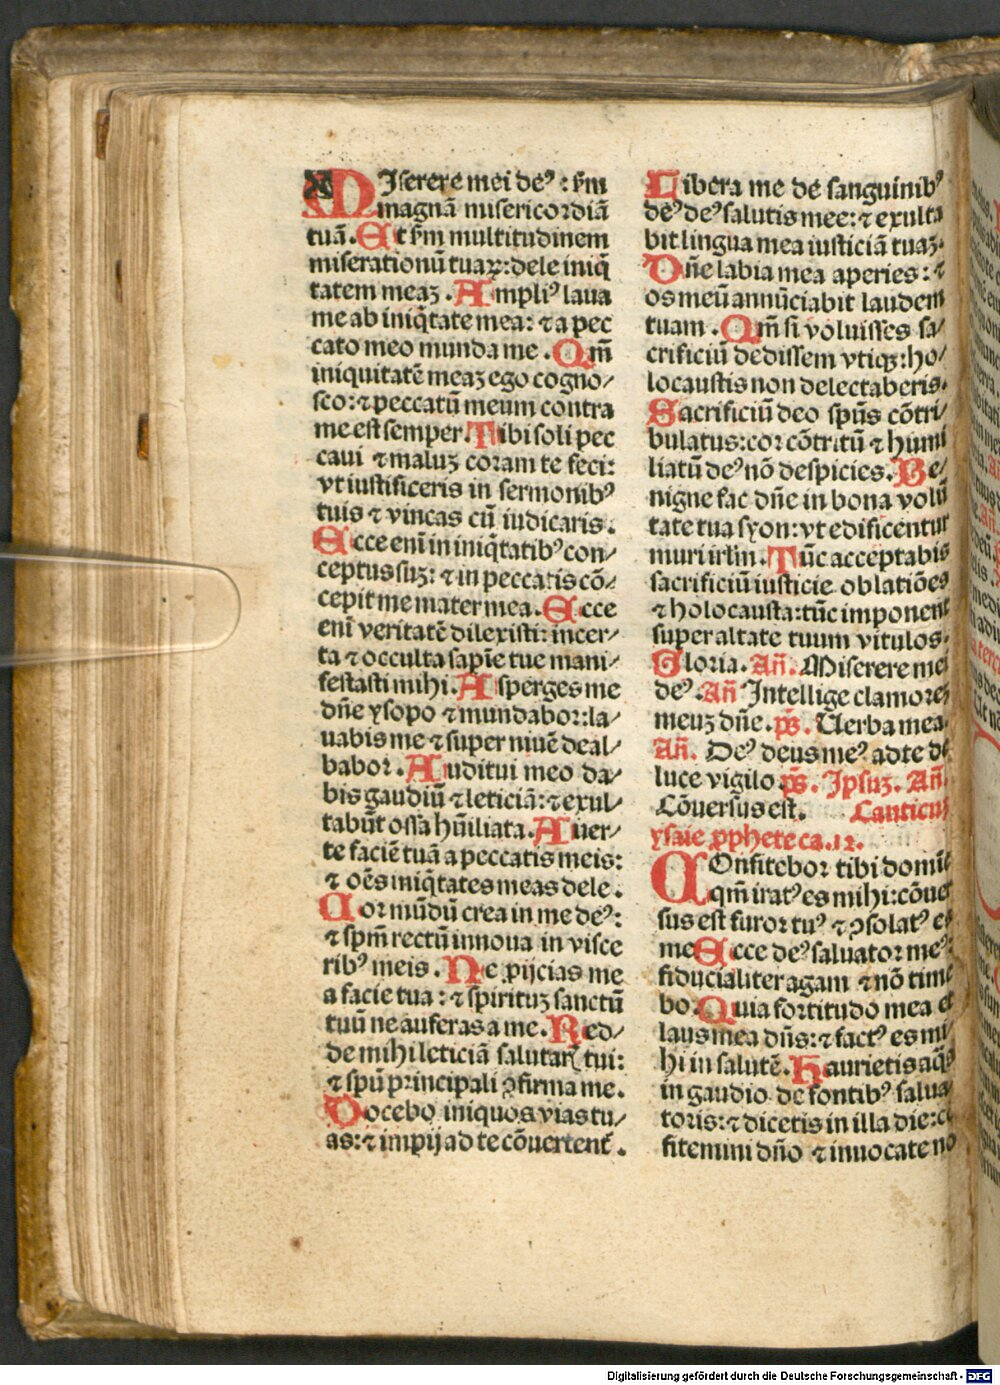 MJserere mei deꝰ : ẜm
magnā misericordiā
tuā. Et ẜm multitudinem
miserationū tuaꝝ: dele iniq̄
tatem meaꝫ. Ampliꝰ laua
me ab iniq̄tate mea: ⁊ a pec
cato meo munda me. Qm̄
iniquitatē meaꝫ ego cogno⸗
sco: ⁊ peccatū meum contra
me est semper. Tibi soli pec
caui ⁊ maluꝫ coram te feci:
vt iustificeris in sermonibꝰ
tuis ⁊ vincas cū iudicaris.
Ecce enī in iniq̄tatibꝰ con⸗
ceptus suꝫ: ⁊ in peccatis cō⸗
cepit me mater mea. Ecce
enī veritatē dilexisti: incer⸗
ta ⁊ occulta sapīe tue mani⸗
festasti mihi. Asperges me
dn̄e ysopo ⁊ mundabor: la⸗
uabis me ⁊ super niuē deal⸗
babor. Auditui meo da⸗
bis gaudiū ⁊ leticiā: ⁊ exul⸗
tabūt ossa hūiliata. Auer⸗
te faciē tuā a peccatis meis:
⁊ oēs iniq̄tates meas dele.
Cor mūdū crea in me deꝰ:
⁊ spm̄ rectū innoua in visce
ribꝰ meis. Ne ꝓijcias me
a facie tua: ⁊ spirituꝫ sanctū
tuū ne auferas a me. Red⸗
de mihi leticiā salutarꝭ tui:
⁊ spū principali ꝯfirma me.
Docebo iniquos vias tu⸗
as: ⁊ impij ad te cōuertent̄.
Libera me de sanguinibꝰ
deꝰ deꝰ salutis mee: ⁊ exulta
bit lingua mea iusticiā tuaꝫ.
Dn̄e labia mea aperies: ⁊
os meū annūciabit laudem
tuam. Qm̄ si voluisses sa⸗
crificiū dedissem vtiqꝫ: ho⸗
locaustis non delectaberis.
Sacrificiū deo spūs cōtri⸗
bulatus: cor cōtritū ⁊ humi
liatū deꝰ nō despicies. Be⸗
nigne fac dn̄e in bona volū
tate tua syon: vt edificentur
muri irlm̄. Tūc acceptabis
sacrificiū iusticie oblatiōes
⁊ holocausta: tūc imponent
super altare tuum vitulos.
Gloria. Añ. Miserere mei
deꝰ. Añ Intellige clamoreꝫ
meuꝫ dn̄e. p̄s. Uerba mea.
Añ. Deꝰ deus meꝰ ad te de
luce vigilo. p̄s. Jpsuꝫ. Añ.
Cōuersus est. Canticuꝫ
ysaie ꝓphete ca. 12.
COnfitebor tibi domīe
qm̄ iratꝰ es mihi: cōuer
sus est furor tuꝰ ⁊ ꝯsolatꝰ es
me. Ecce deꝰ saluator meꝰ:
fiducialiter agam ⁊ nō time
bo. Quia fortitudo mea et
laus mea dn̄s: ⁊ factꝰ es mi
hi in salutē. Haurietis aq̄s
in gaudio de fontibꝰ salua
toris: ⁊ dicetis in illa die: cō
fitemini dn̄o ⁊ inuocate no
Digitalisierung gefördert durch die Deutsche Forschungsgemeinschaft - DFG